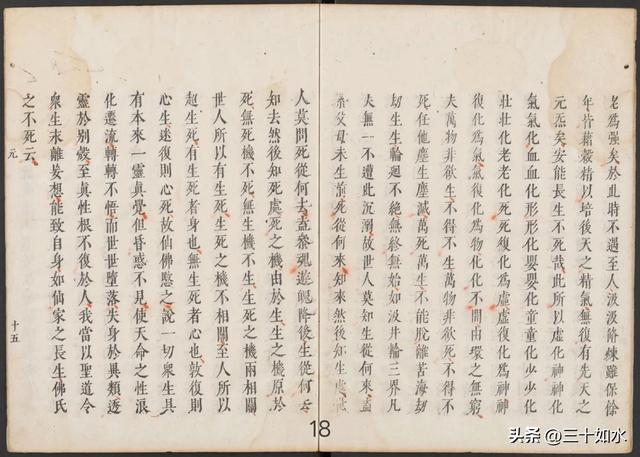 老為强矣於此時不遇至人汲汲脩煉雖保餘
年皆藉穀精以培後天之精氣無復有先天之
元炁矣安能長生不死哉此所以虛化神神化
氣氣化血血化形形化嬰嬰化童童化少少化
壯壯化老老化死死復化為虛虛復化為神神
復化為氣氣復化為物化化不間由環之無窮
夫萬物非欲生不得不生萬物非欲死不得不
死任他塵生塵滅萬死萬生不能脫離苦海刼
刼生生輪迴不絕無終無始如汲井輪三界凡
夫無一不遭此沉溺故世人莫知生從何來盍
系父母未生前死從何來知來然後知生處世
人莫問死從何去盍衆魂遊魄降後生從何去
知去然後知死處死之機由於生生之機原於
死無死機不死無生機不生生死之機兩相關
世人所以有生死生死之機不相關至人所以
超生死有生死者身也無生死者心也敦復則
心生迷復則心死故仙佛愍之說一切衆生具
有本來一靈眞覺但昏惑不見使天命之性浪
化遷流轉轉不悟而世世墮落失身於異類透
靈於別殼至眞性根不復於人我當以聖道令
衆生未離妄想能致自身如仙家之長生佛氏
之不死云
元
十五
18
头条 @三十如水